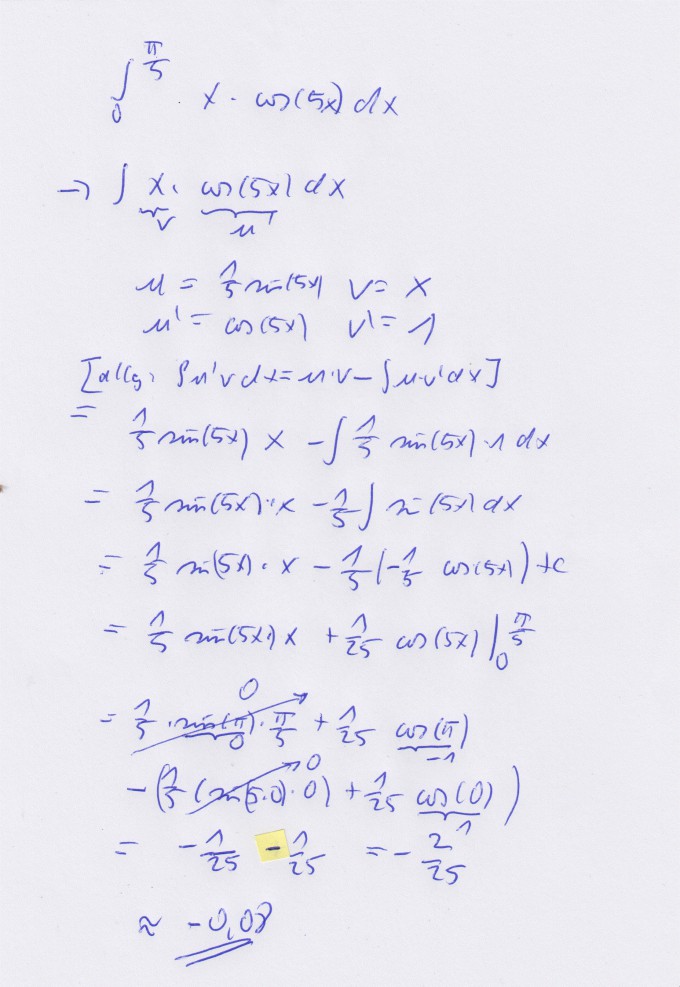 ∫₀^(π/5) x · cos(5x) dx
→ ∫ x · cos(5x) dx
v u'
u = 1/5 sin(5x) v = x
u' = cos(5x) v' = 1
[allg. ∫u'v dx = u·v − ∫u·v' dx]
= 1/5 sin(5x) x − ∫ 1/5 sin(5x) · 1 dx
= 1/5 sin(5x) · x − 1/5 ∫ sin(5x) dx
= 1/5 sin(5x) · x − 1/5 (−1/5 cos(5x)) + c
= 1/5 sin(5x) · x + 1/25 cos(5x) |₀^(π/5)
0
= 1/5 · sin(π) · π/5 + 1/25 cos(π)
0 −1
0
− (1/5 (sin(5·0) · 0) + 1/25 cos(0))
1
= −1/25 − 1/25 = −2/25
≈ −0,08